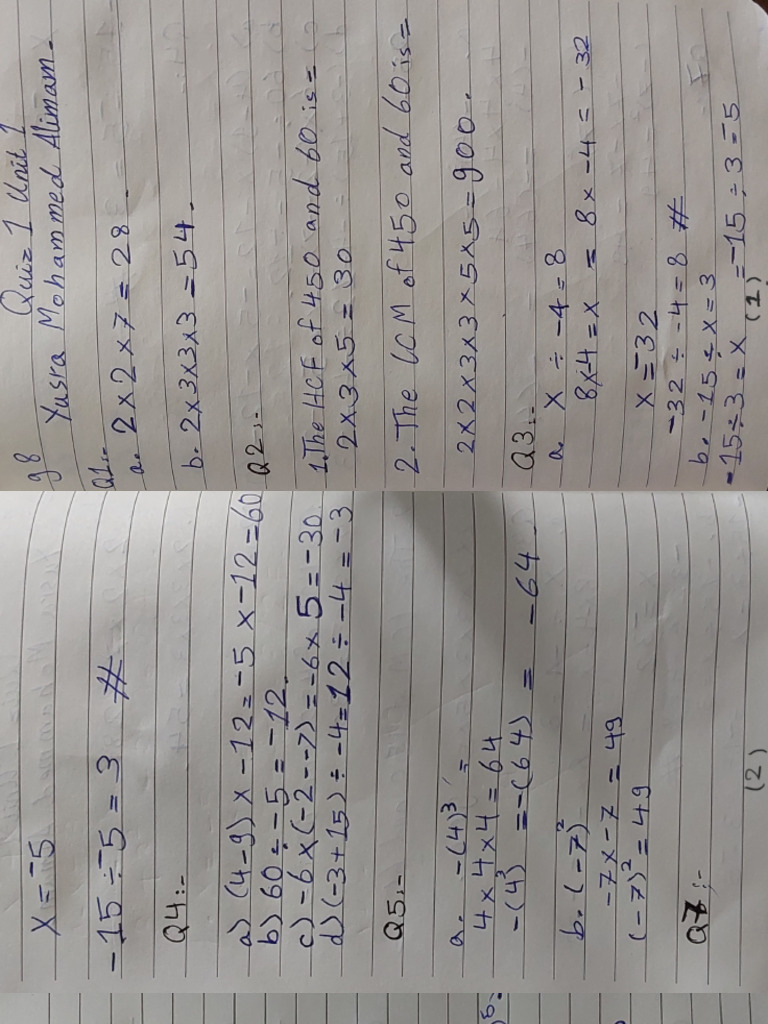 g8 Quiz 1 Unit 1
Yusra Mohammed Alimam.
Q1:-
a. 2×2×7=28.
b. 2×3×3×3=54.
Q2:-
1. The HCF of 450 and 60 is=
2×3×5=30
2. The LCM of 450 and 60 is=
2×2×3×3×5×5=900.
Q3:-
a. x ÷ -4=8
8×-4=x = 8×-4=-32
x=-32
-32÷-4=8 #
b. -15÷x=3
-15÷3=x =-15÷3=-5
(1)
x=-5
-15÷-5=3 #
Q4:-
a) (4-9)×-12=-5×-12=60
b) 60÷-5=-12.
c) -6×(-2--7)=-6×5=-30.
d) (-3+15)÷-4=12÷-4=-3
Q5:-
a. -(4)³ =
4×4×4=64
-(4)³ =-(64) = -64.
b. (-7)²
-7×-7=49
(-7)²=49
Q7:-
(2)